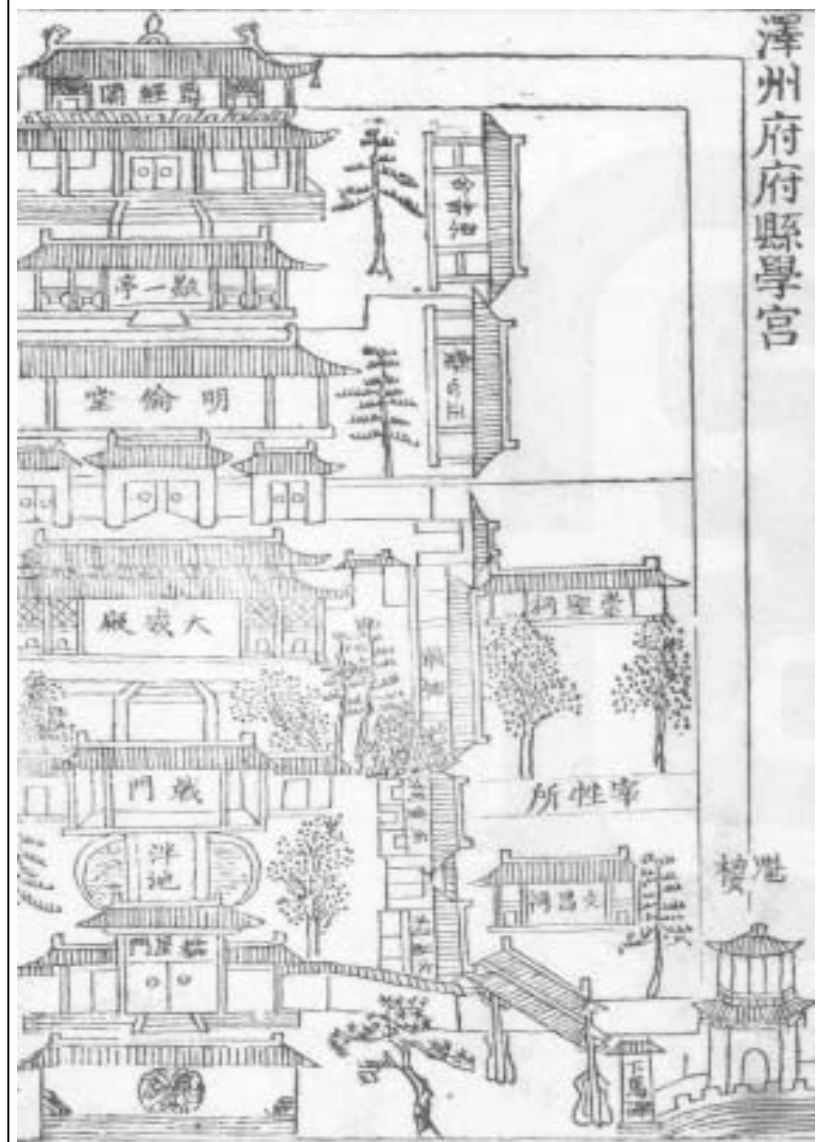 澤州府府縣學宮
尊經閣
敬一亭
明倫堂
大成殿
崇聖祠
宰牲所
戟門
泮池
文昌祠
魁樓
櫺星門
下馬牌